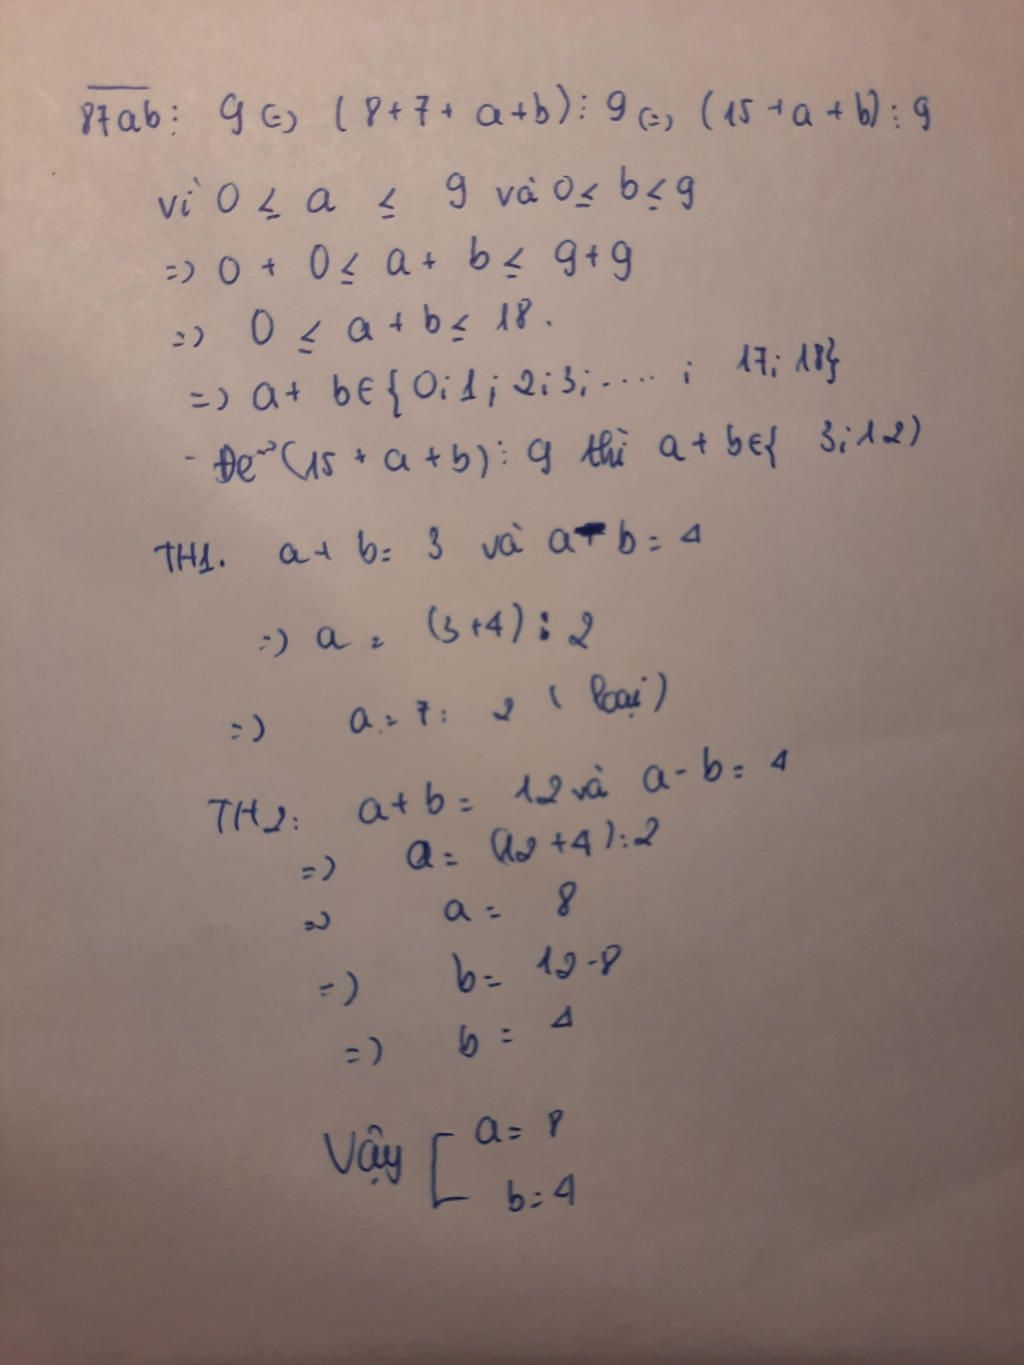 87ab ⋮ 9 (=) (8+7+ a+b) ⋮ 9 (=) (15 +a + b) ⋮ 9
vì 0 ≤ a ≤ 9 và 0 ≤ b ≤ 9
=) 0 + 0 ≤ a + b ≤ 9+9
=) 0 ≤ a + b ≤ 18.
=) a + b ∈ { 0; 1; 2; 3; .... ; 17; 18}
- Để (15 + a + b) ⋮ 9 thì a + b ∈ { 3; 12)
TH1. a + b = 3 và a - b = 4
=) a = (3 +4) : 2
=) a = 7 : 2 ( loại)
TH2: a + b = 12 và a - b = 4
=) a = (12 +4) : 2
=) a = 8
=) b = 12 - 8
=) b = 4
Vậy [ a = 8
b = 4